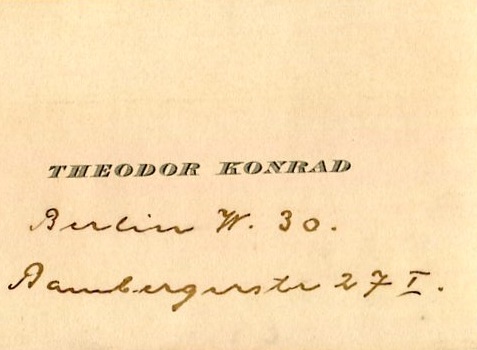 THEODOR KONRAD
Berlin W. 30.
Bambergerstr 27 I.